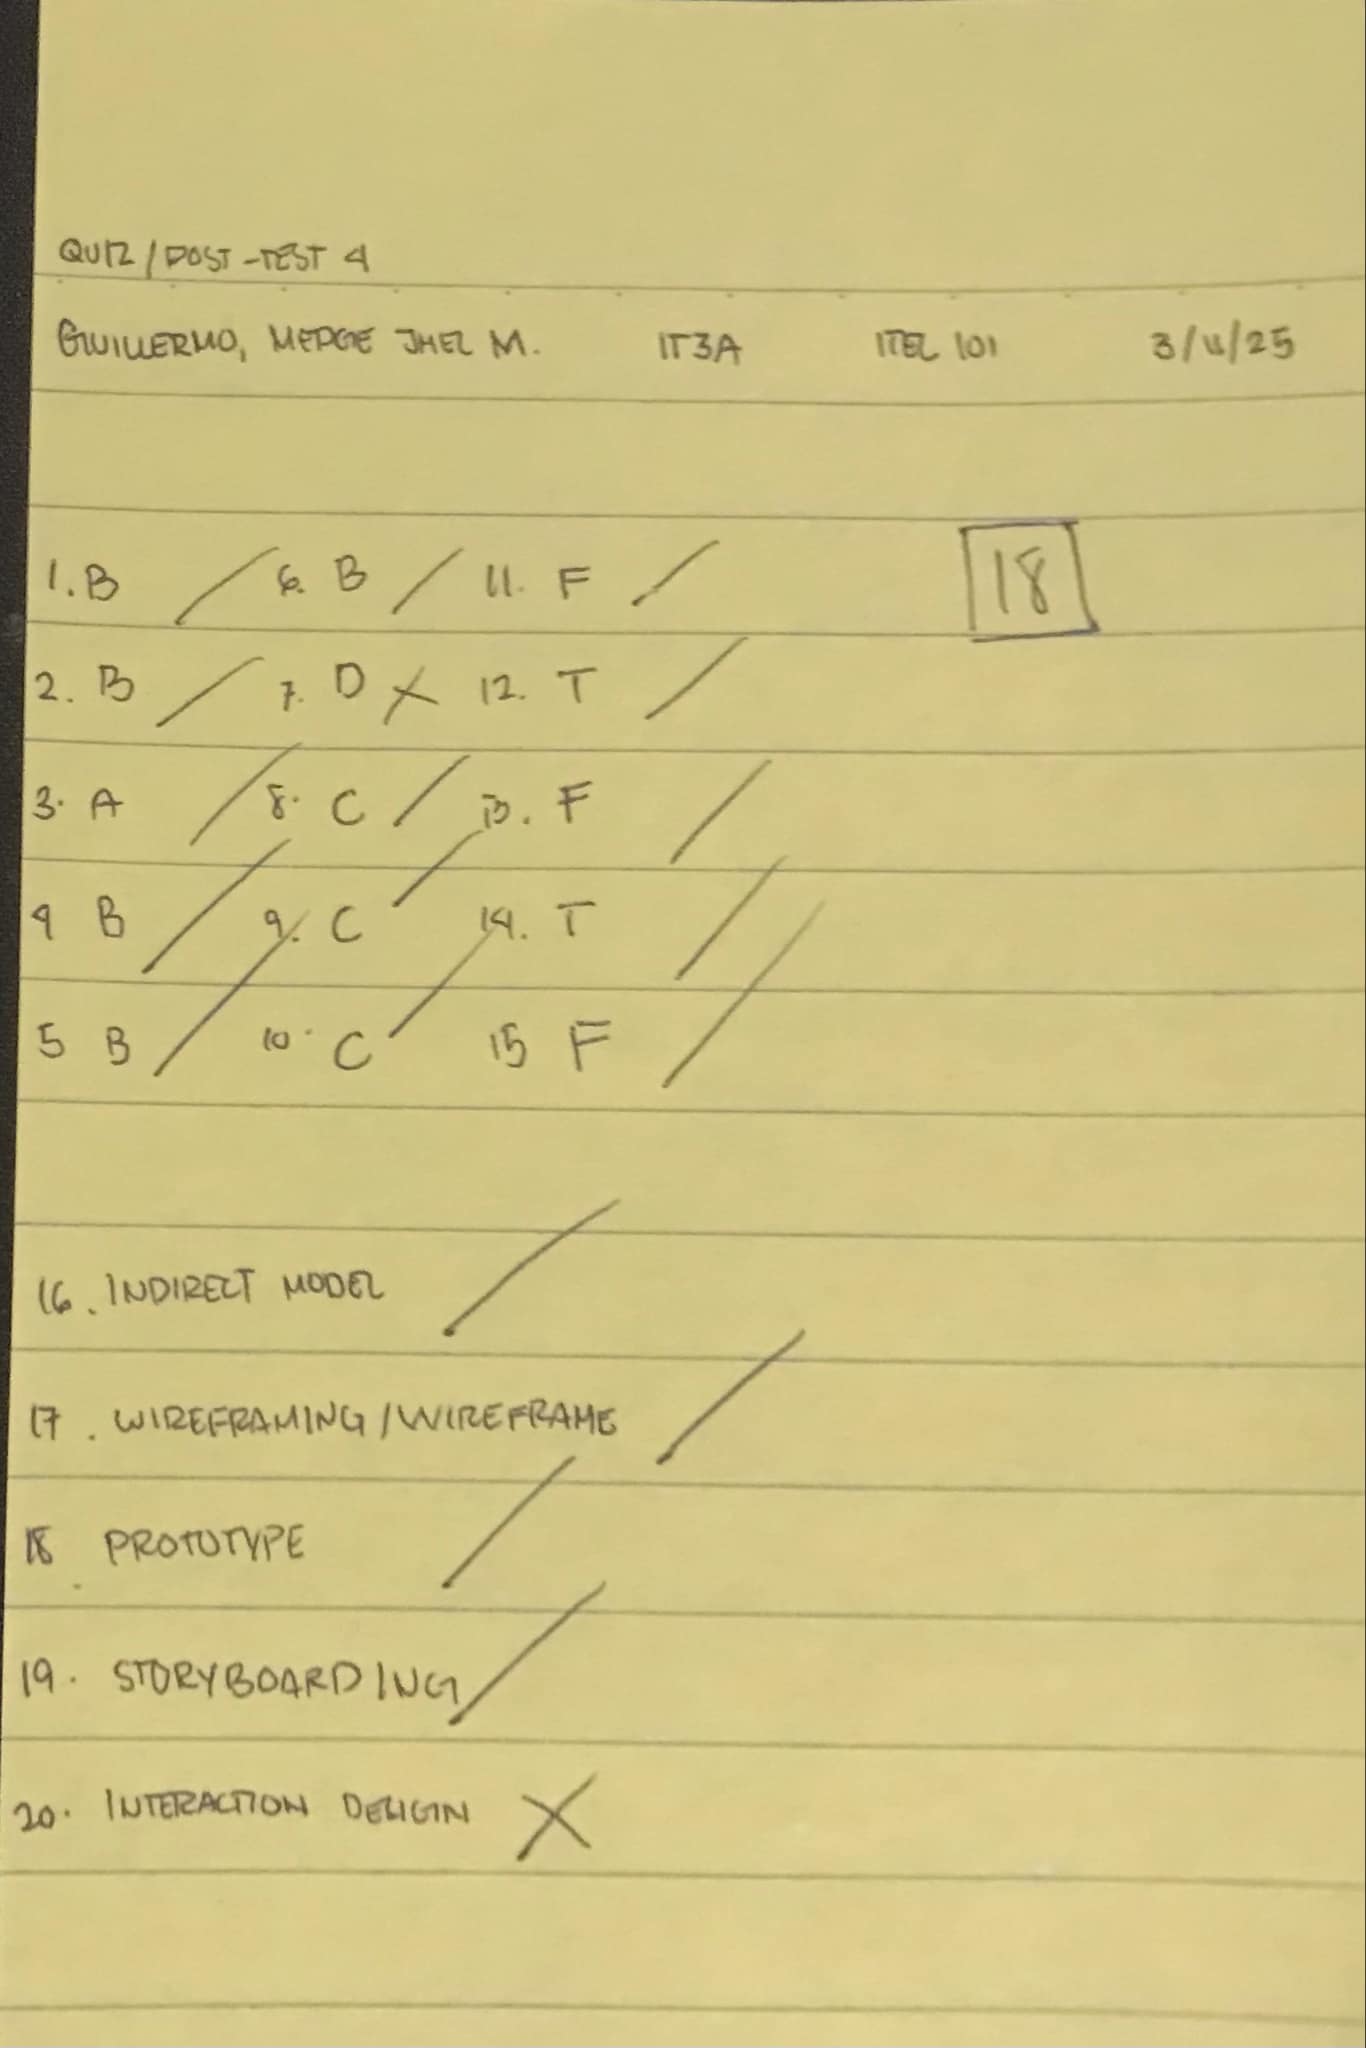 QUIZ / POST-TEST 4
GUILLERMO, MERGE JHEL M. IT3A ITEL 101 3/11/25
1. B / 6. B / 11. F / 18
2. B / 7. D X 12. T /
3. A / 8. C / 13. F /
4 B / 9. C / 14. T /
5 B / 10. C / 15 F /
16. INDIRECT MODEL /
17. WIREFRAMING / WIREFRAME /
18 PROTOTYPE /
19. STORYBOARDING /
20. INTERACTION DESIGN X